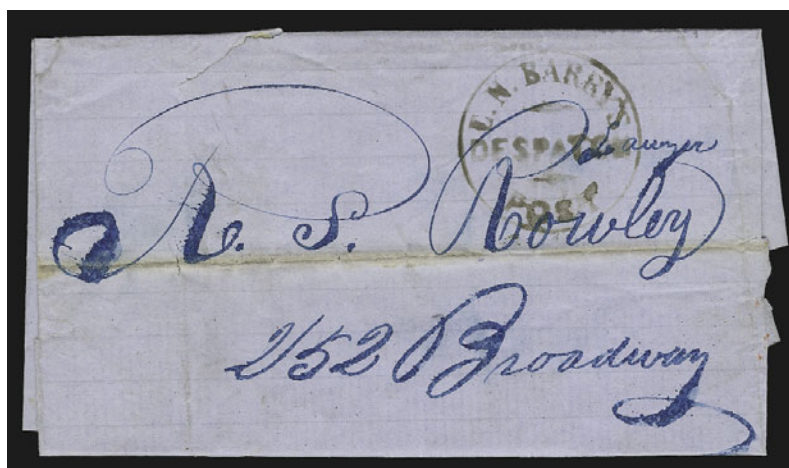 E. N. BARRY'S
DESPATCH
POST
Lawyer
R. S. Rowley
252 Broadway